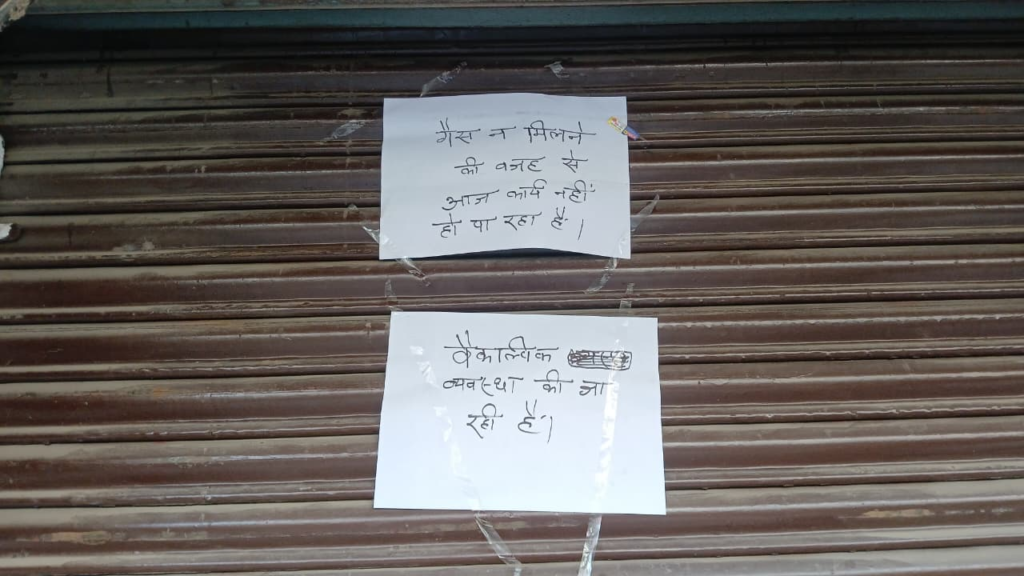 गैस न मिलने
की वजह से
आज कार्य नहीं
हो पा रहा है।
वैकल्पिक
व्यवस्था की जा
रही है।